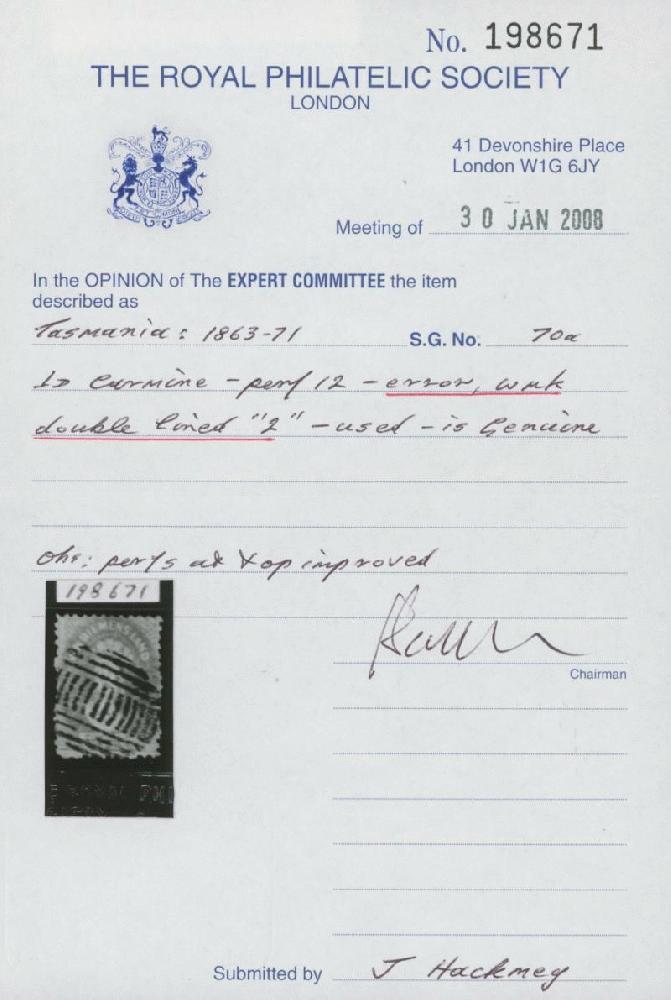 No. 198671
THE ROYAL PHILATELIC SOCIETY
LONDON
41 Devonshire Place
London W1G 6JY
Meeting of 30 JAN 2008
In the OPINION of The EXPERT COMMITTEE the item
described as
Tasmania: 1863-71 S.G. No. 70a
1D carmine - perf 12 - error, wmk
double lined "2" - used - is Genuine
perfs at top improved
198671
Chairman
Submitted by J Hackmey